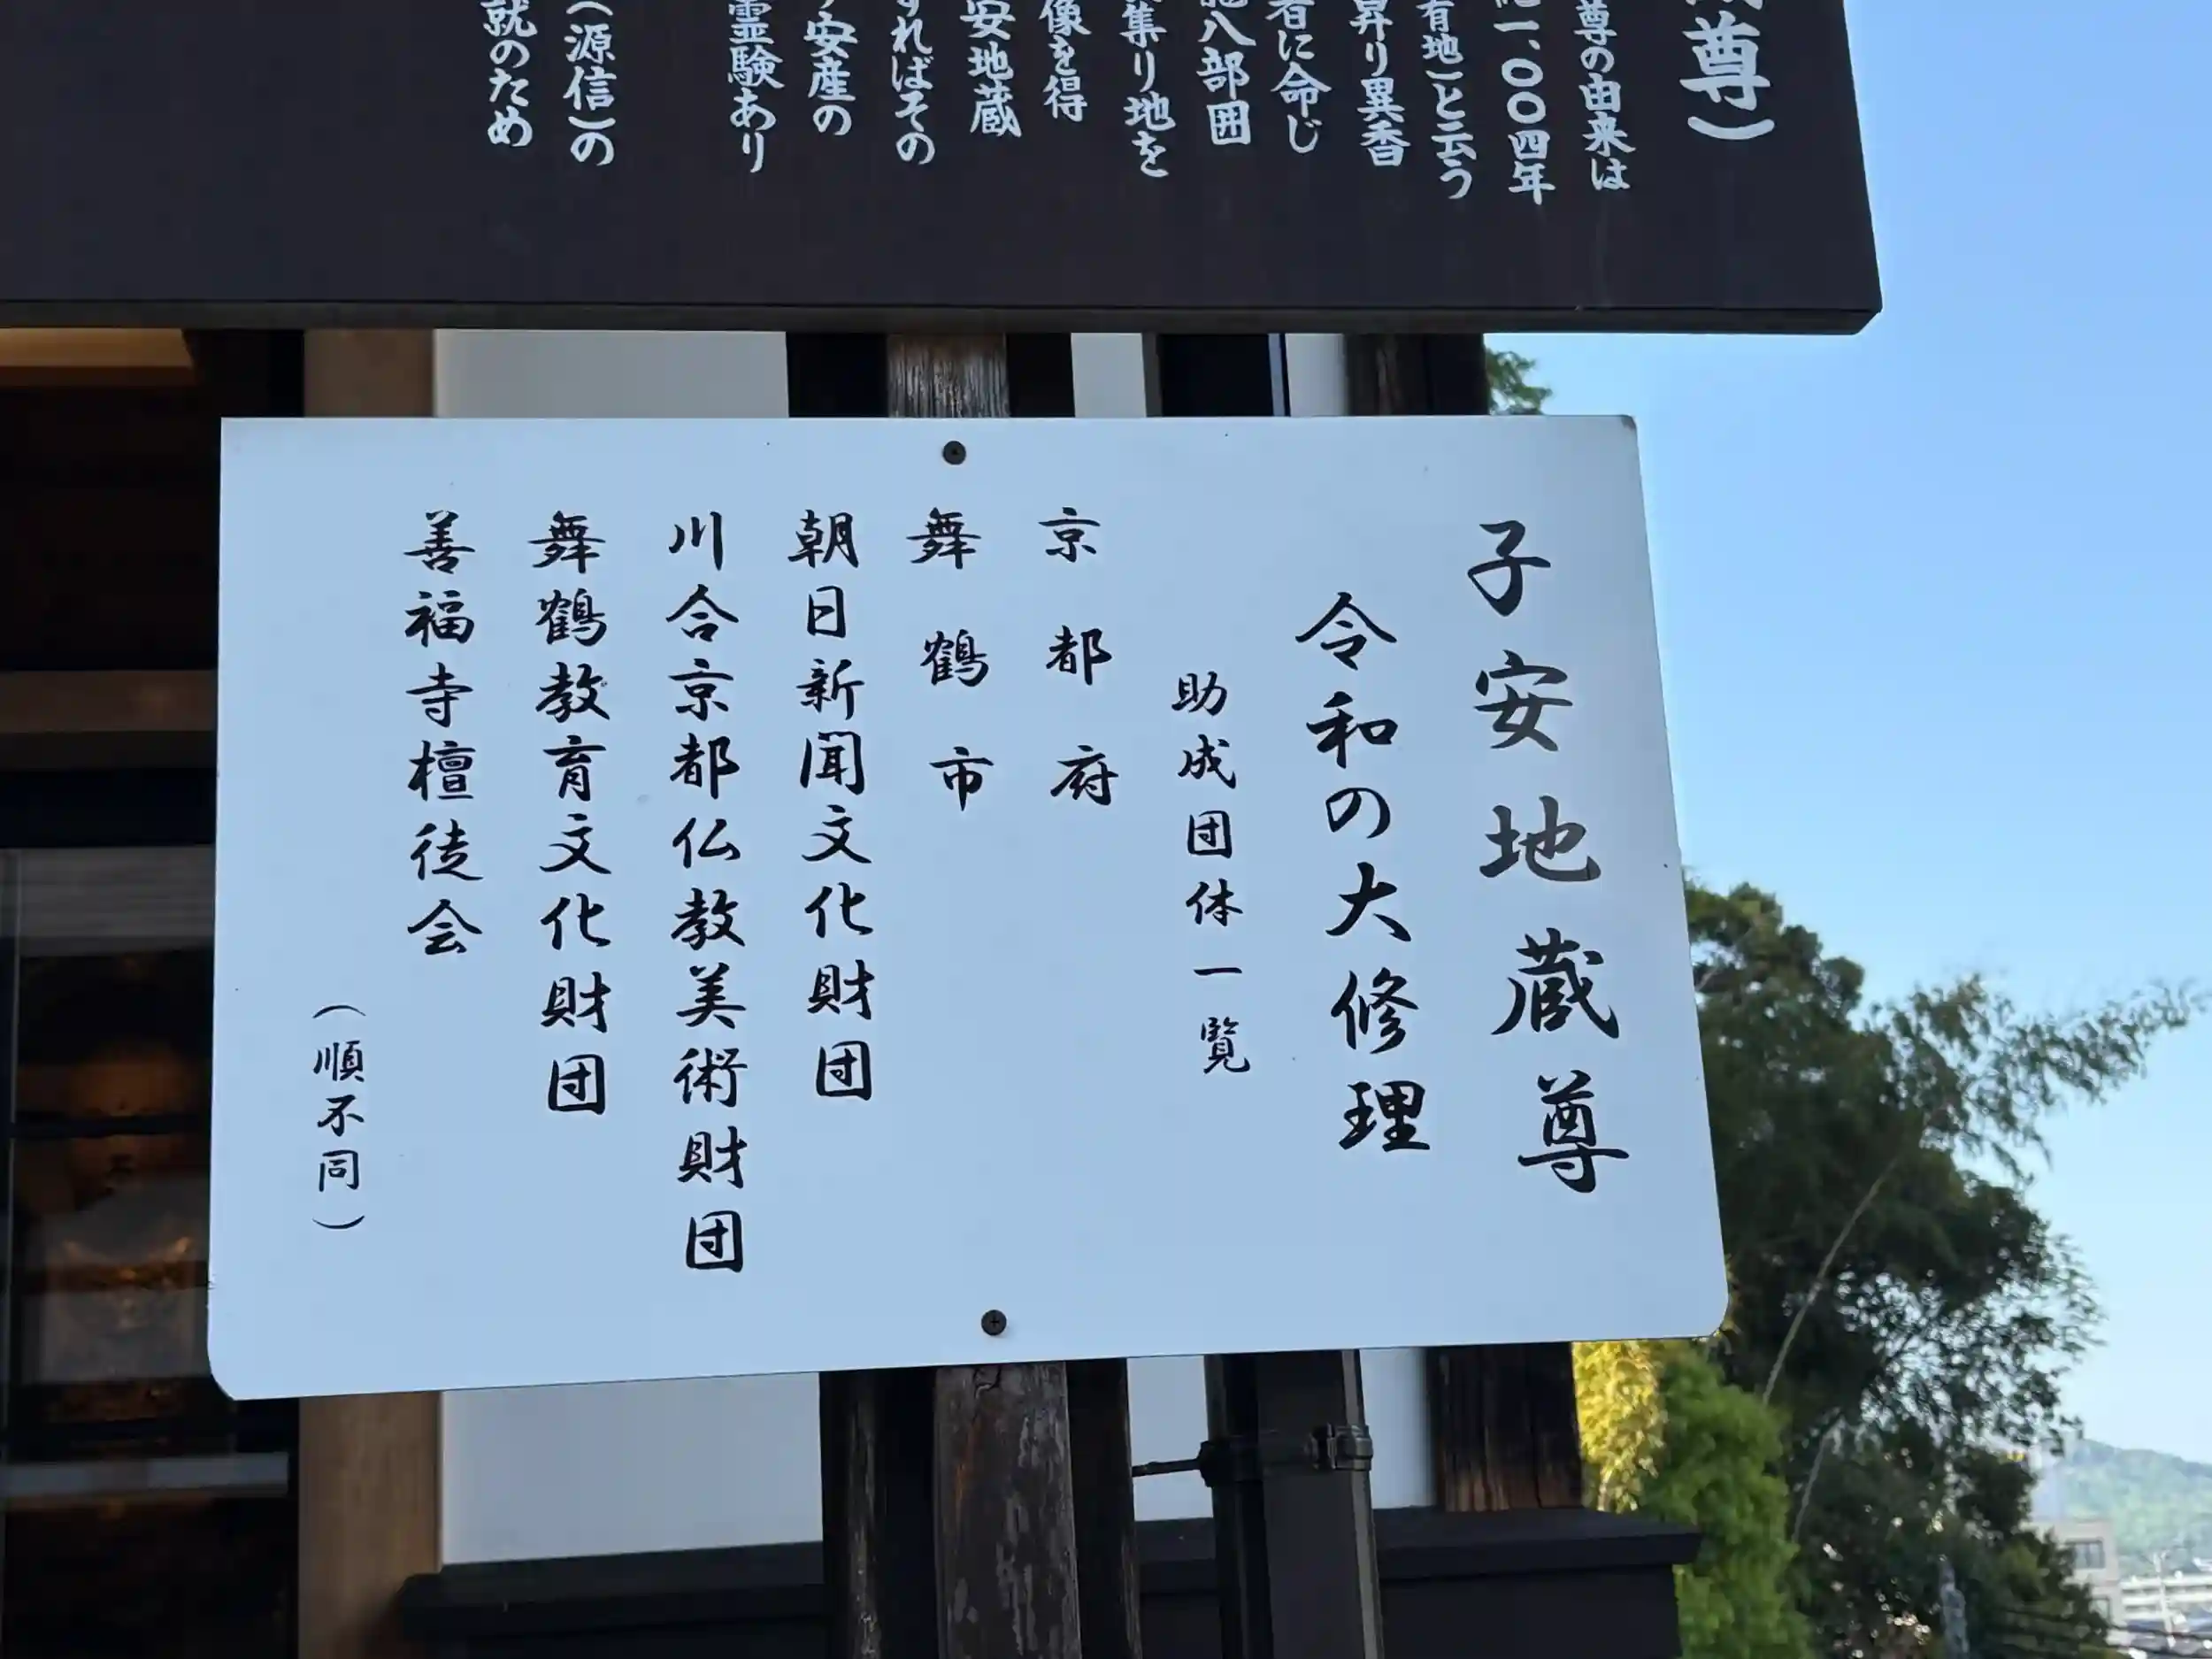 尊）
尊の由来は
一、〇〇四年
有地）と云う
昇り異香
者に命じ
八部囲
集り地を
像を得
安地蔵
ればその
安産の
霊験あり
（源信）の
就のため
子安地蔵尊
令和の大修理
助成団体一覧
京都府
舞鶴市
朝日新聞文化財団
川合京都仏教美術財団
舞鶴教育文化財団
善福寺檀徒会
（順不同）